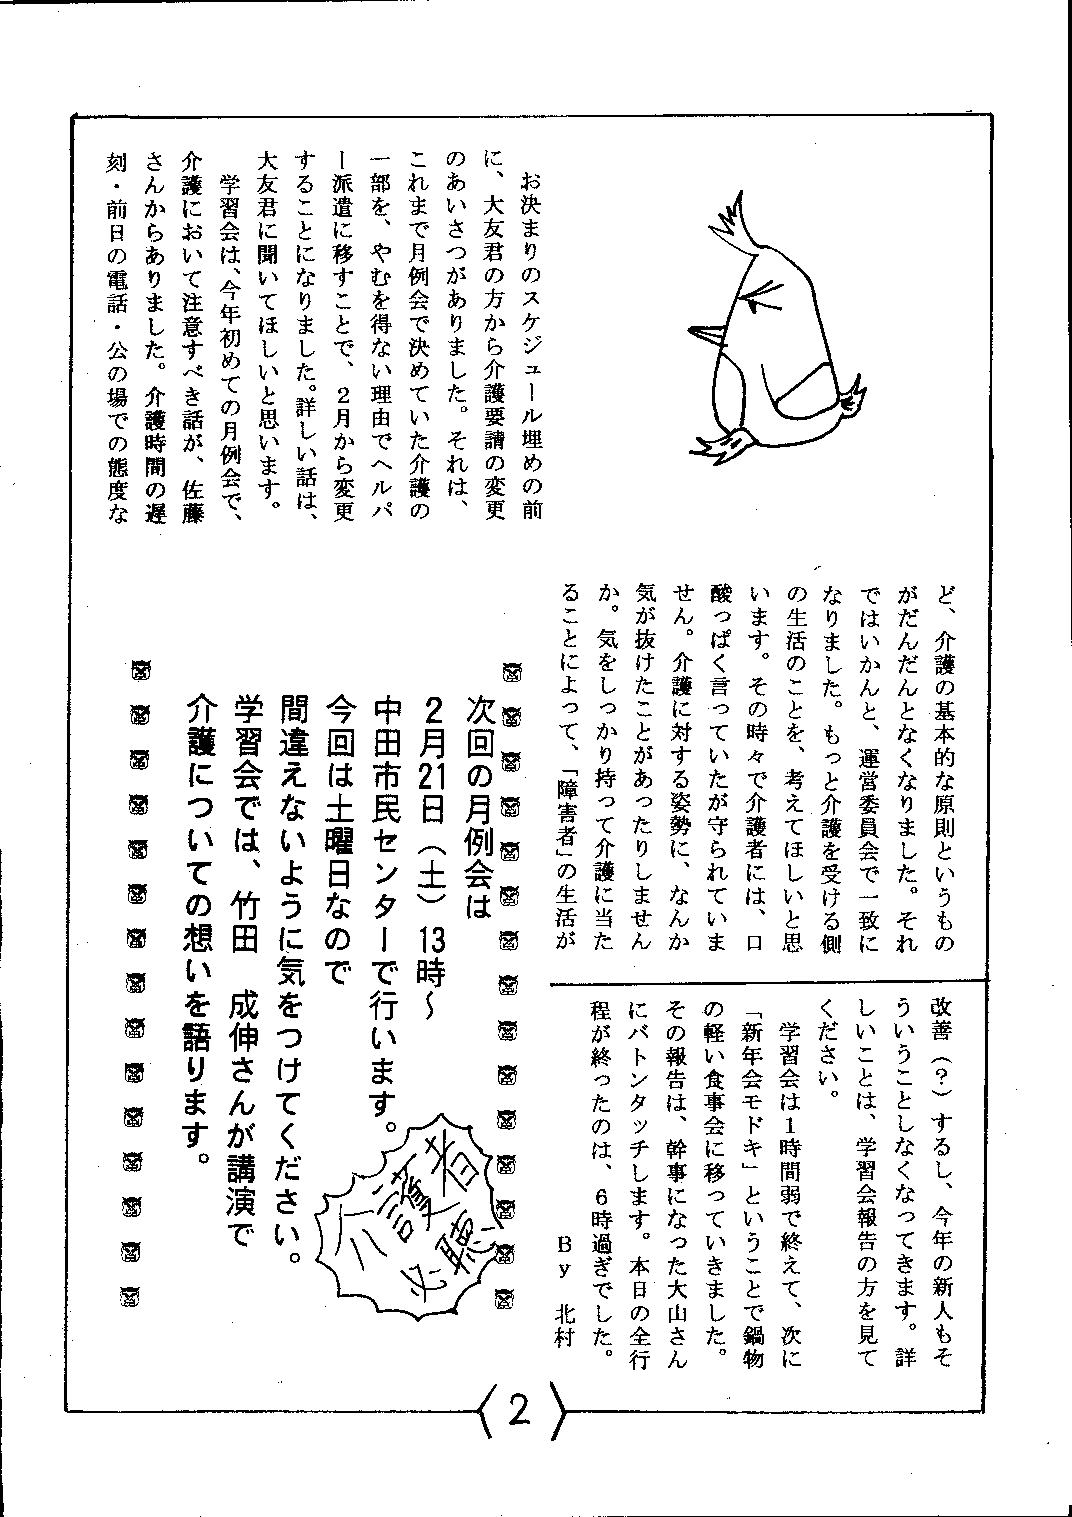 お決まりのスケジュール埋めの前
に、大友君の方から介護要請の変更
のあいさつがありました。それは、
これまで月例会で決めていた介護の
一部を、やむを得ない理由でヘルパ
ー派遣に移すことで、２月から変更
することになりました。詳しい話は、
大友君に聞いてほしいと思います。
学習会は、今年初めての月例会で、
介護において注意すべき話が、佐藤
さんからありました。介護時間の遅
刻・前日の電話・公の場での態度な
ど、介護の基本的な原則というもの
がだんだんとなくなりました。それ
ではいかんと、運営委員会で一致に
なりました。もっと介護を受ける側
の生活のことを、考えてほしいと思
います。その時々で介護者には、口
酸っぱく言っていたが守られていま
せん。介護に対する姿勢に、なんか
気が抜けたことがあったりしません
か。気をしっかり持って介護に当た
ることによって、「障害者」の生活が
改善（？）するし、今年の新人もそ
ういうことしなくなってきます。詳
しいことは、学習会報告の方を見て
ください。
学習会は１時間弱で終えて、次に
「新年会モドキ」ということで鍋物
の軽い食事会に移っていきました。
その報告は、幹事になった大山さん
にバトンタッチします。本日の全行
程が終ったのは、６時過ぎでした。
Ｂｙ　北村
次回の月例会は
２月21日（土）13時～
中田市民センターで行います。
今回は土曜日なので
間違えないように気をつけてください。
学習会では、竹田　成伸さんが講演で
介護についての想いを語ります。
介護者
必聴
〈2〉